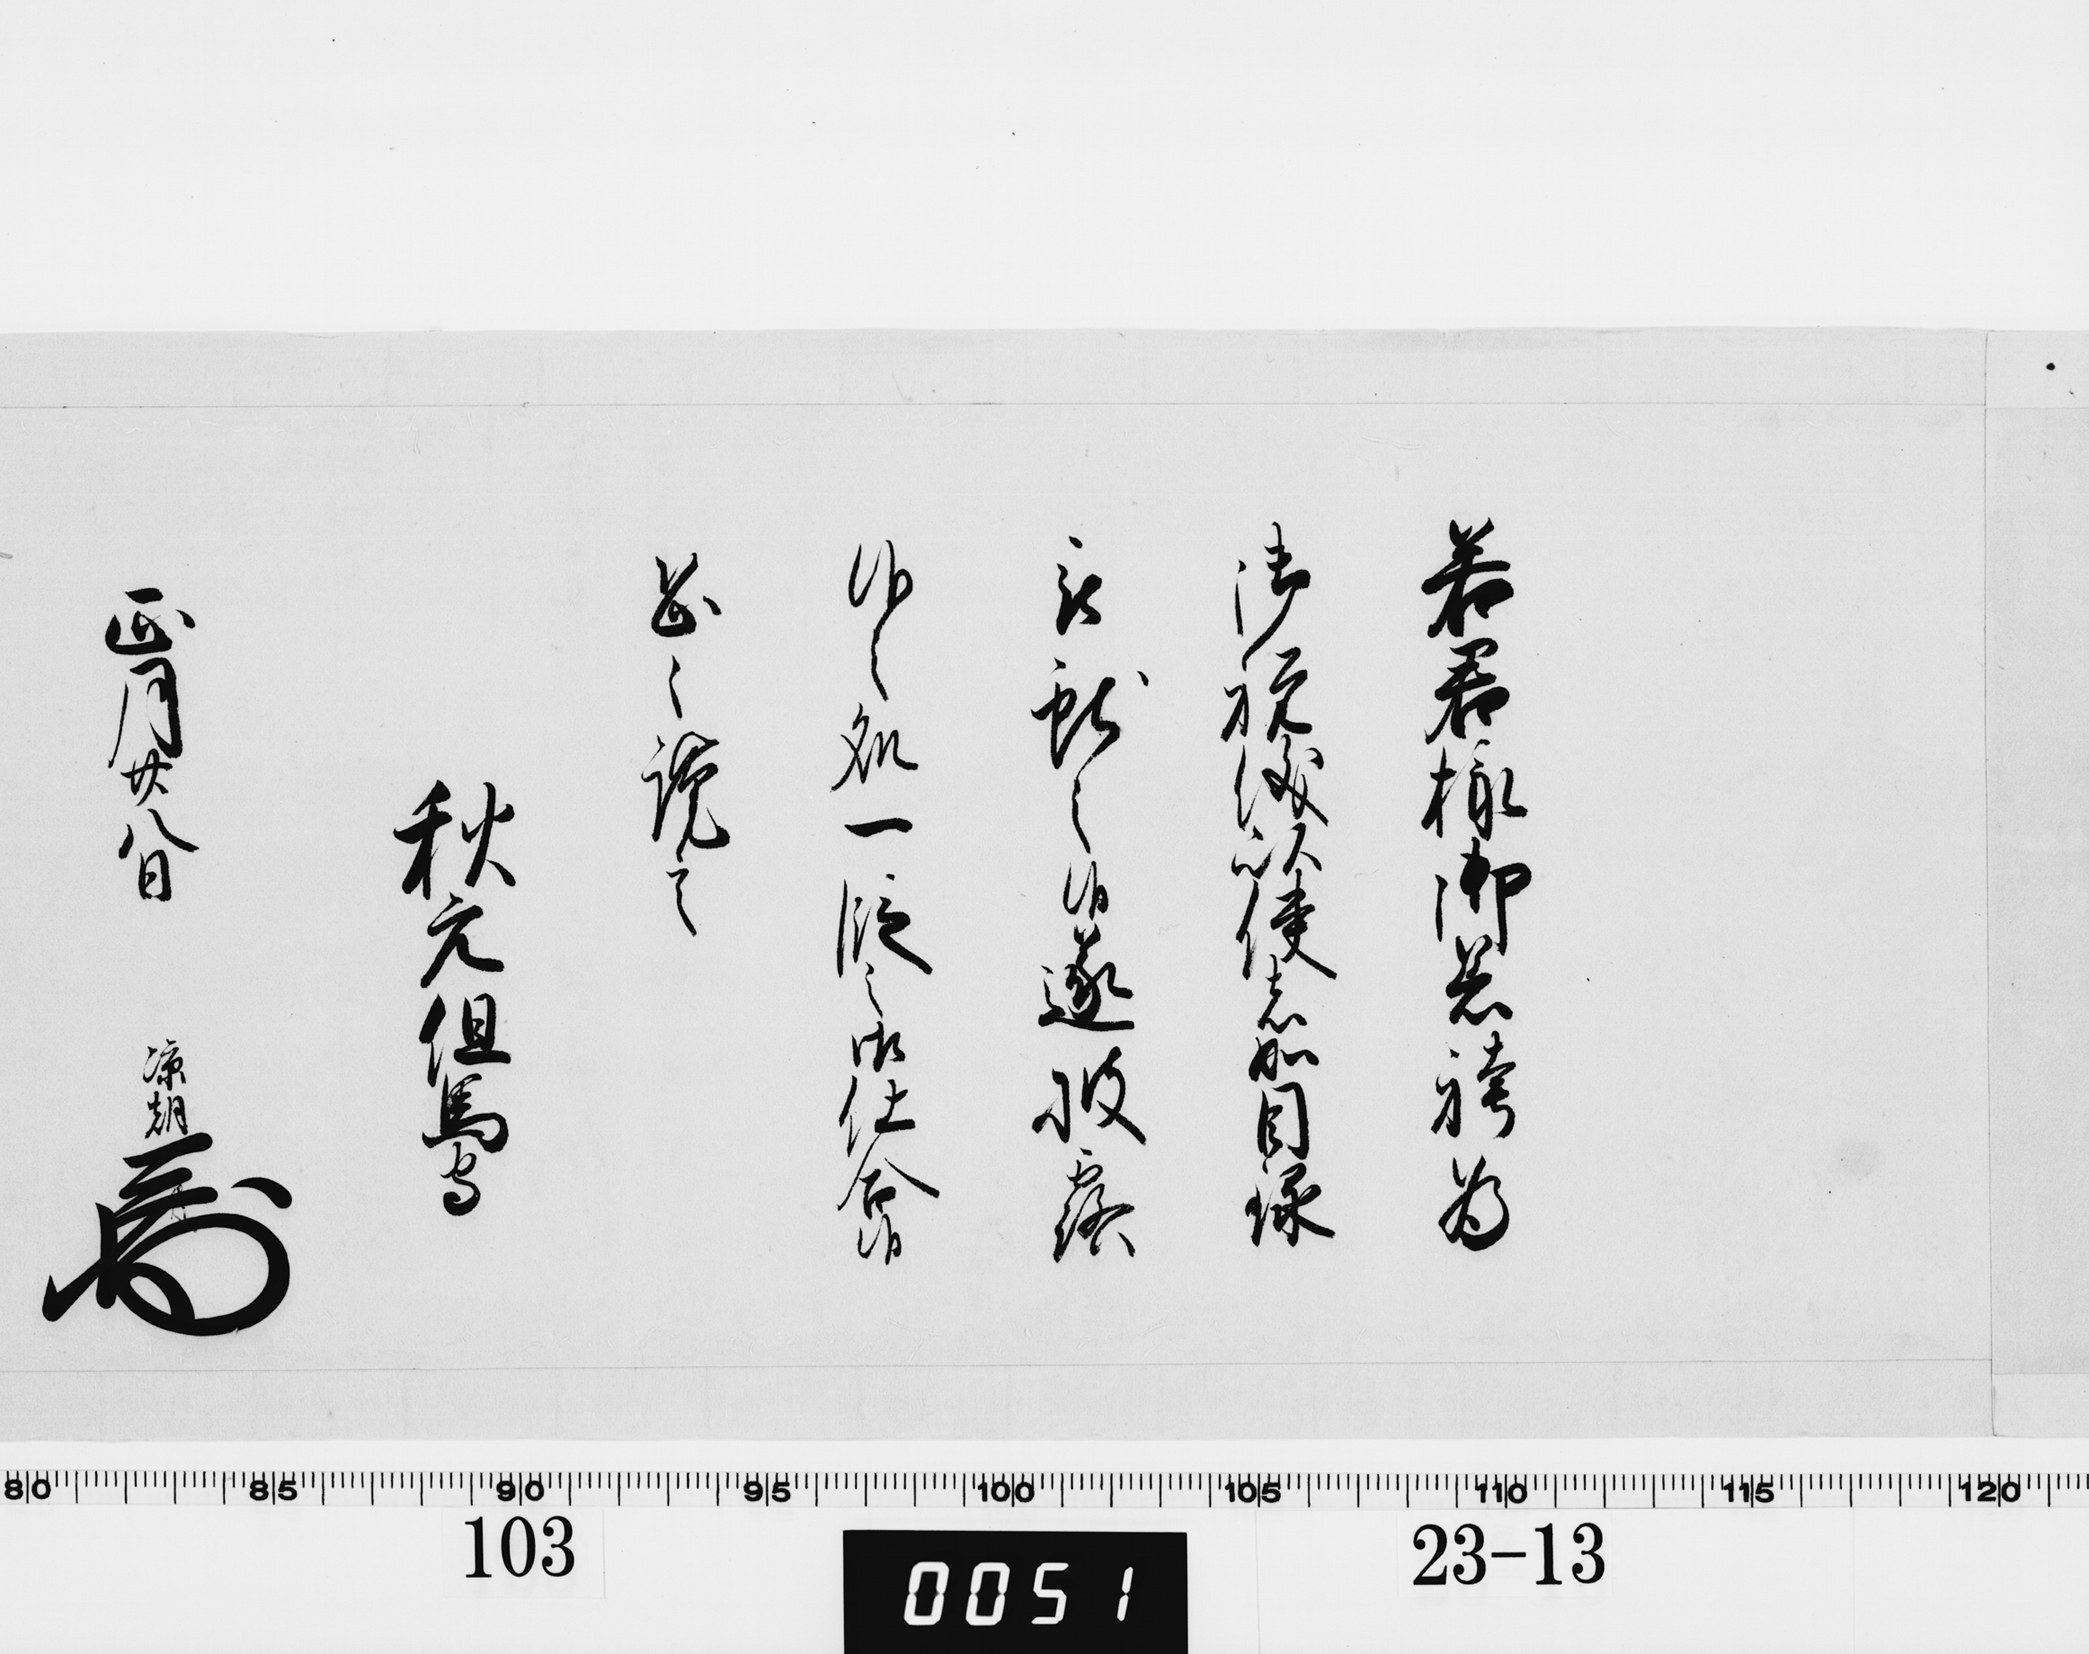 若君様御着袴為
御祝儀以使者如目録
被獻之候遂披露
候之処一段之御仕合候
恐々謹言
秋元但馬守
正月廿八日 凉朝
80 85 90 95 100 105 110 115 120
103
0051
23-13